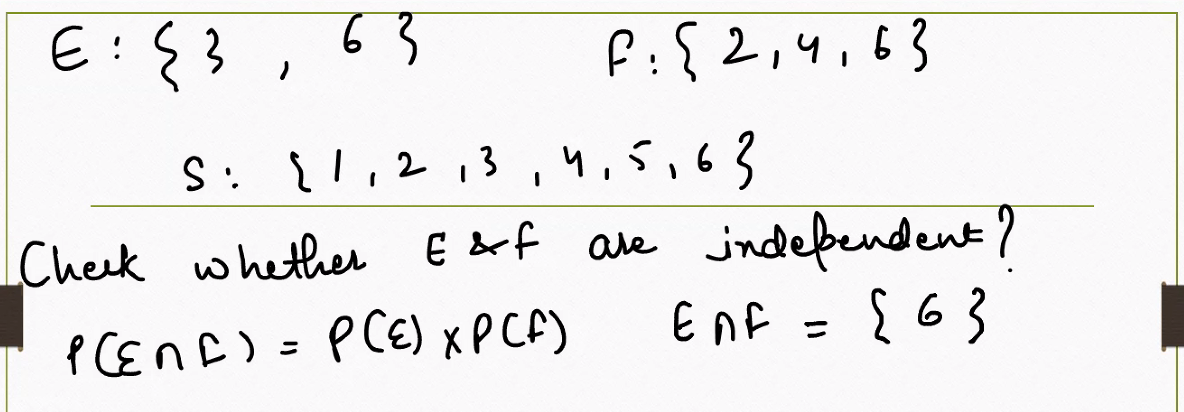 E : { 3 , 6 } F : { 2 , 4 , 6 }
S : { 1 , 2 , 3 , 4 , 5 , 6 }
Check whether E & F are independent ?
P(E ∩ F) = P(E) × P(F) E ∩ F = { 6 }